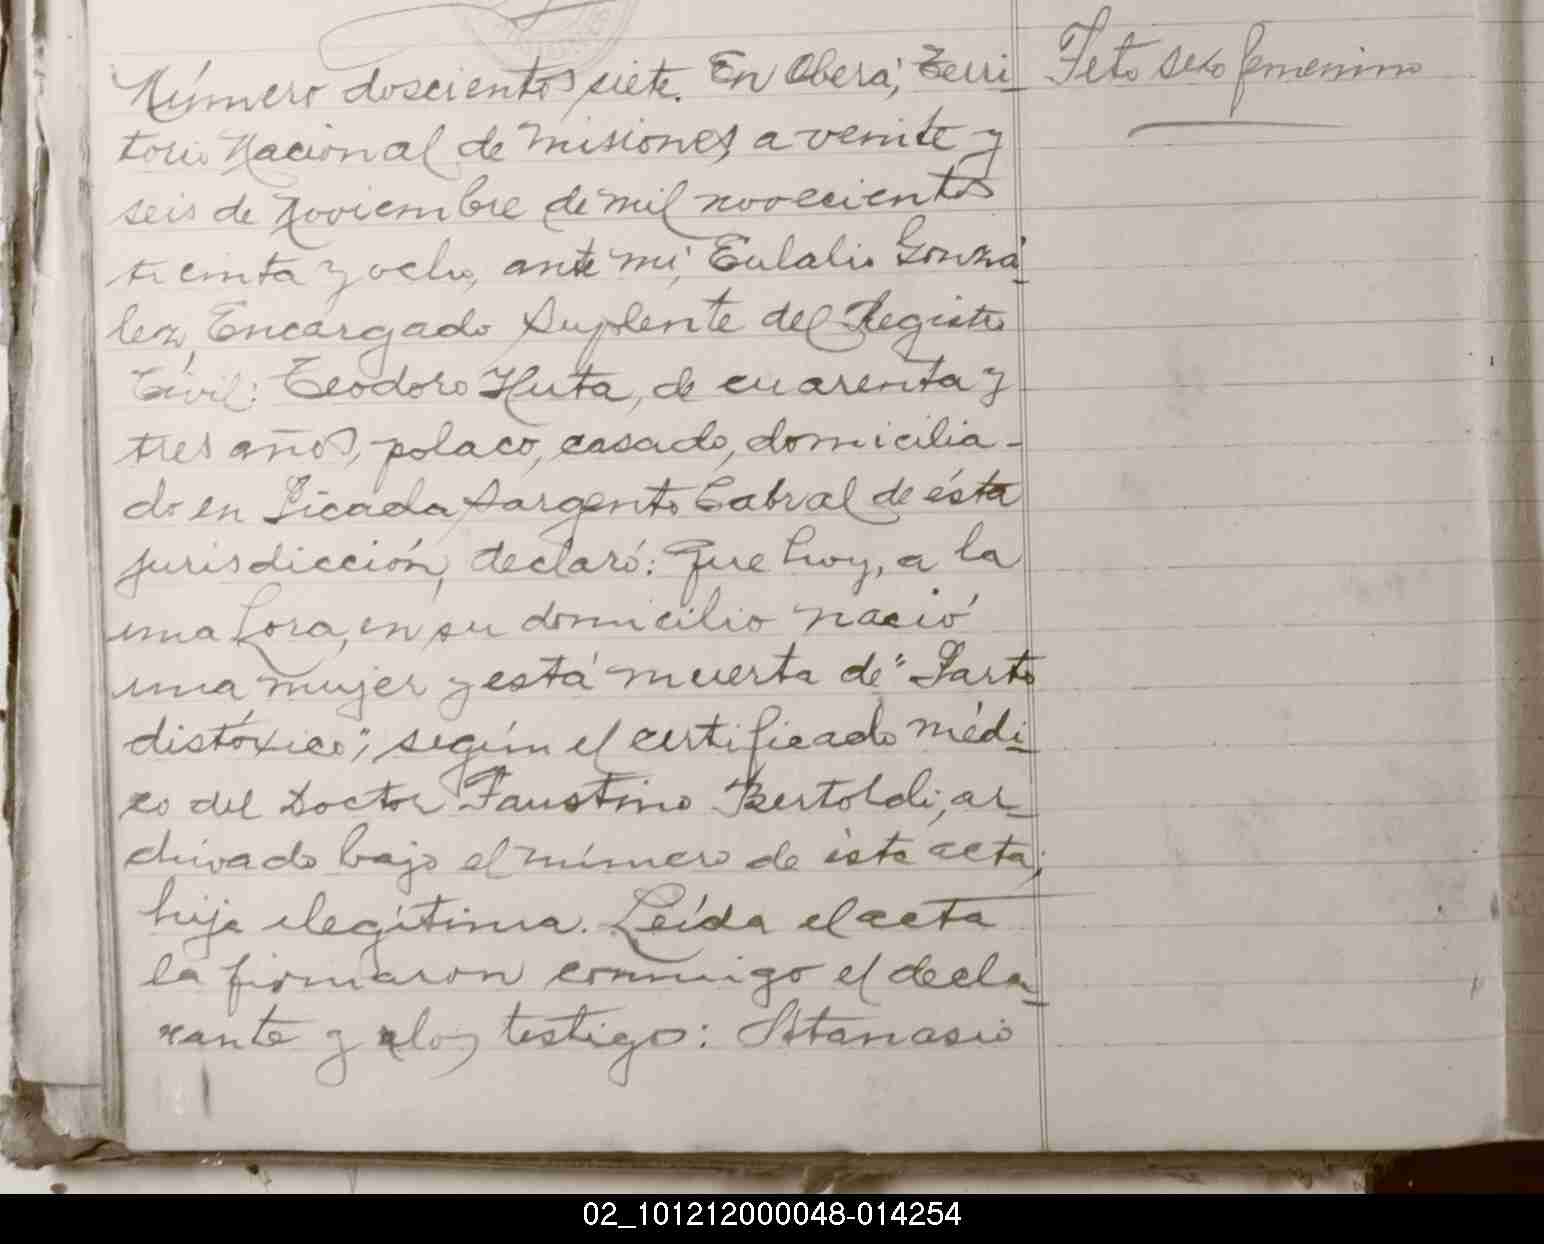 Número doscientos siete. En Oberá, Terri-
torio Nacional de Misiones, a veinte y
seis de Noviembre de mil novecientos
treinta y ocho, ante mí, Eulalio Gonzá-
lez, Encargado Suplente del Registro
Civil: Teodoro Huta, de cuarenta y
tres años, polaco, casado, domicilia-
do en Picada Sargento Cabral de ésta
jurisdicción, declaró: Que hoy, a la
una hora, en su domicilio nació
una mujer y está muerta de "Parto
distóxico"; según el certificado médi-
co del Doctor Faustino Bertoldi, ar-
chivado bajo el número de ésta acta;
hija ilegítima. Leída el acta
la firmaron conmigo el decla-
rante y los testigos: Atanasio
Feto sexo femenino
02_101212000048-014254